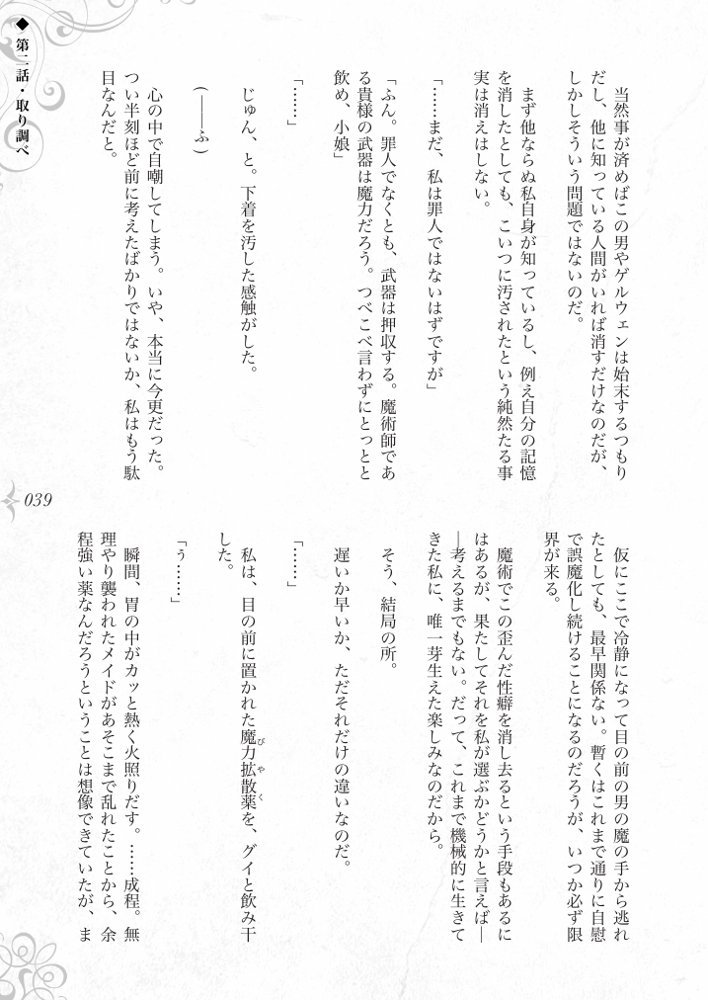 ◆ 第二話・取り調べ
当然事が済めばこの男やゲルウェンは始末するつもり
だし、他に知っている人間がいれば消すだけなのだが、
しかしそういう問題ではないのだ。
まず他ならぬ私自身が知っているし、例え自分の記憶
を消したとしても、こいつに汚されたという純然たる事
実は消えはしない。
「……まだ、私は罪人ではないはずですが」
「ふん。罪人でなくとも、武器は押収する。魔術師であ
る貴様の武器は魔力だろう。つべこべ言わずにとっとと
飲め、小娘」
「……」
じゅん、と。下着を汚した感触がした。
（――ふ）
心の中で自嘲してしまう。いや、本当に今更だった。
つい半刻ほど前に考えたばかりではないか、私はもう駄
目なんだと。
仮にここで冷静になって目の前の男の魔の手から逃れ
たとしても、最早関係ない。暫くはこれまで通りに自慰
で誤魔化し続けることになるのだろうが、いつか必ず限
界が来る。
魔術でこの歪んだ性癖を消し去るという手段もあるに
はあるが、果たしてそれを私が選ぶかどうかと言えば―
―考えるまでもない。だって、これまで機械的に生きて
きた私に、唯一芽生えた楽しみなのだから。
そう、結局の所。
遅いか早いか、ただそれだけの違いなのだ。
「……」
私は、目の前に置かれた魔力拡散薬を、グイと飲み干
びやく
した。
「う……」
瞬間、胃の中がカッと熱く火照りだす。……成程。無
理やり襲われたメイドがあそこまで乱れたことから、余
程強い薬なんだろうということは想像できていたが、ま
039